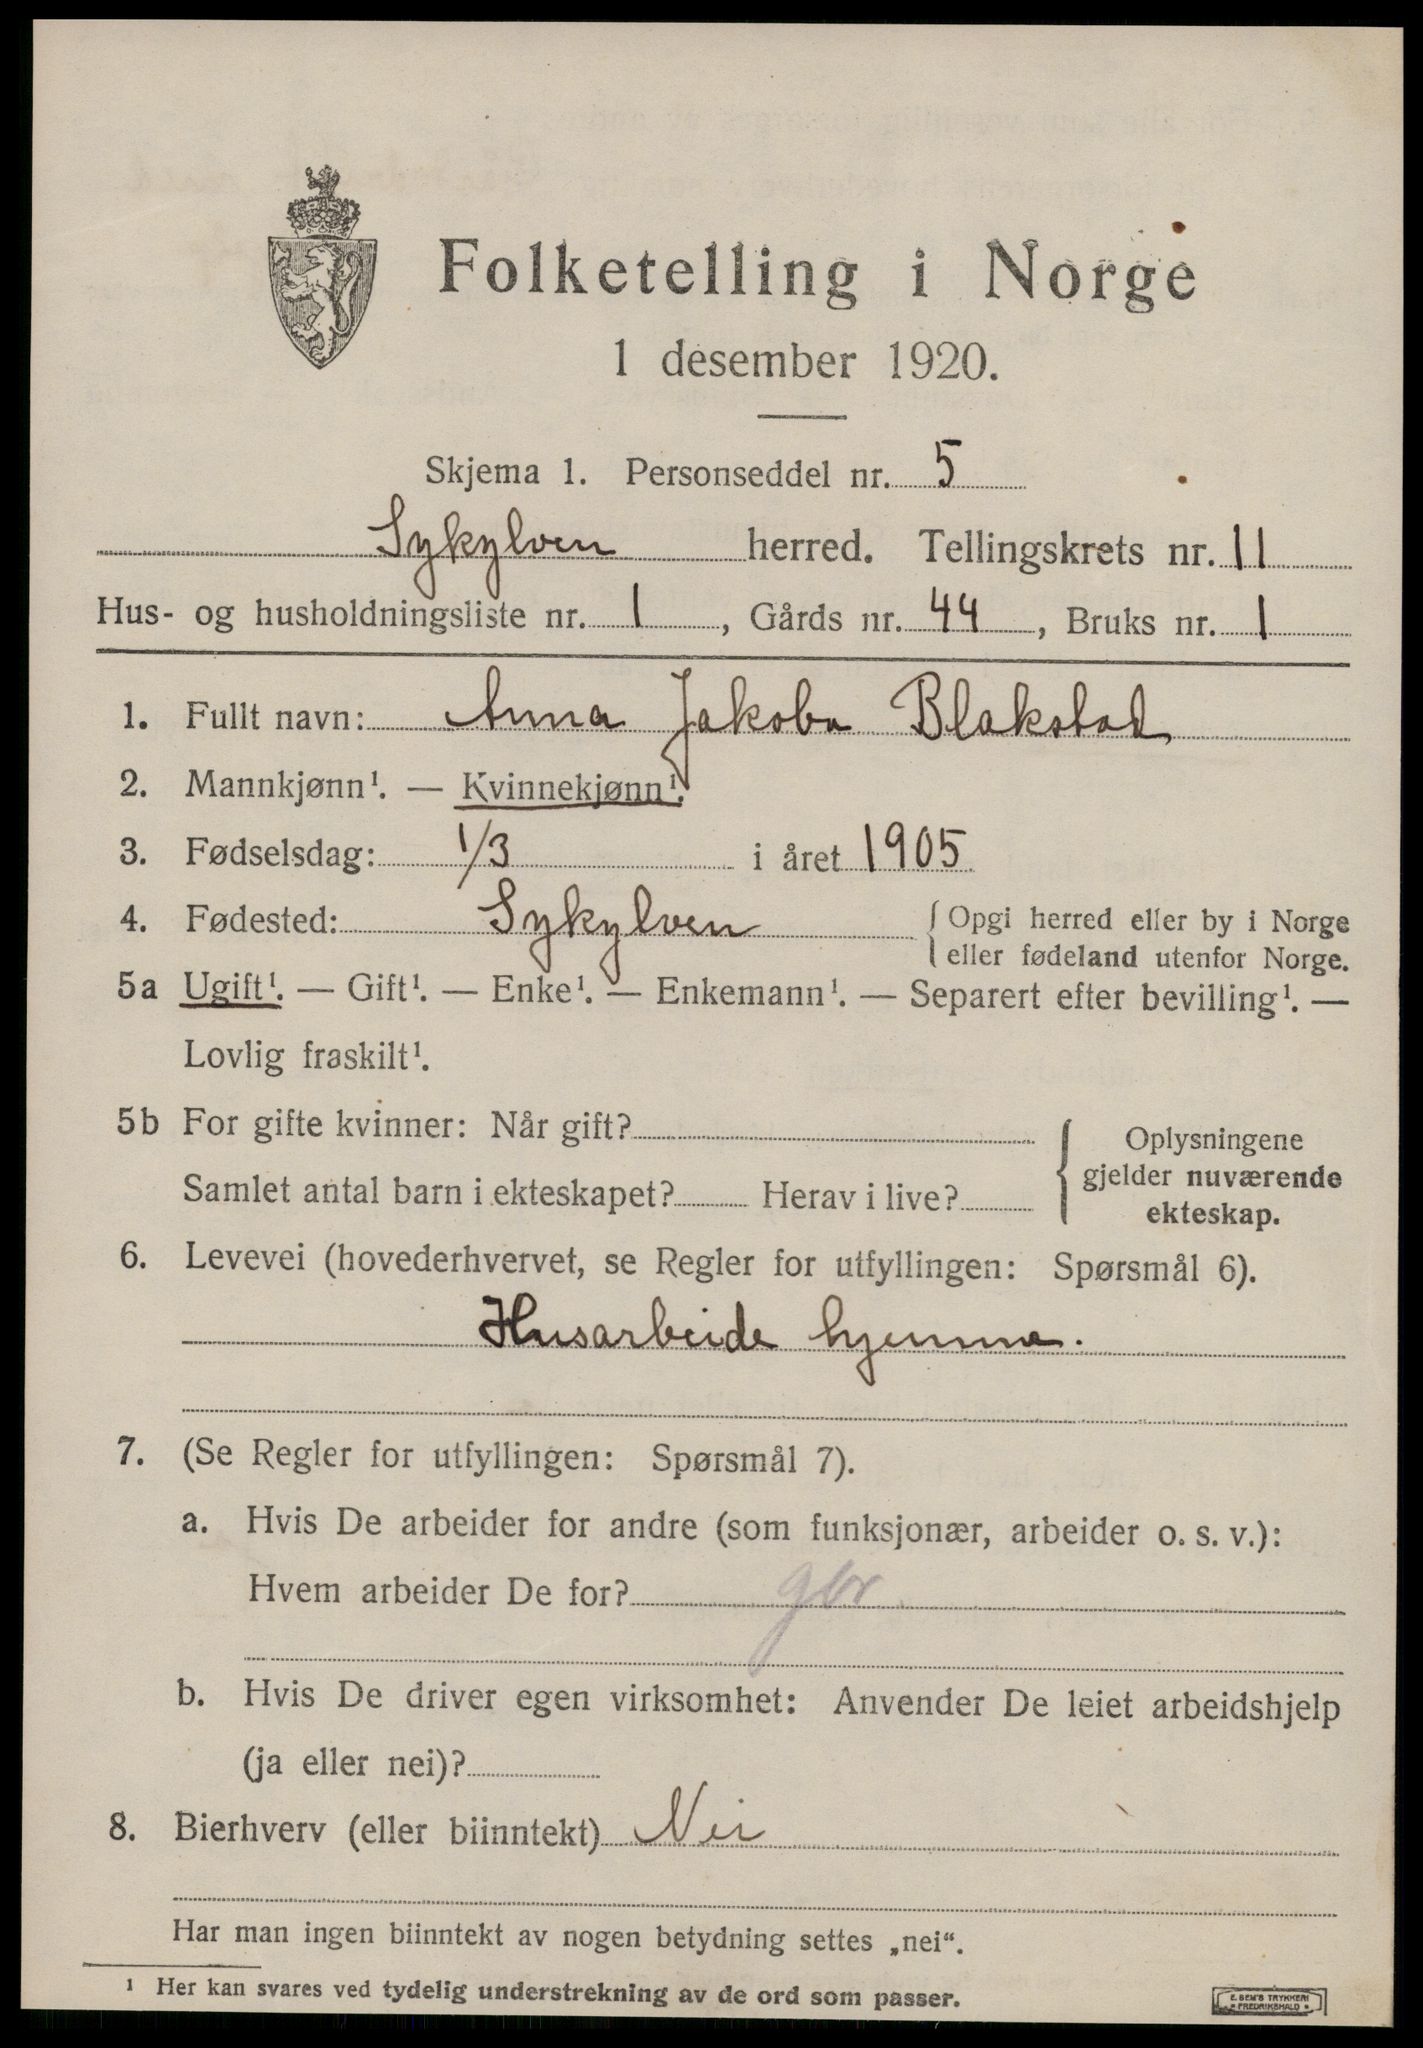 Folketelling i Norge
1 desember 1920.
Skjema 1. Personseddel nr. 5
Sykylven herred. Tellingskrets nr. 11
Hus- og husholdningsliste nr. 1, Gårds nr. 44, Bruks nr. 1
1. Fullt navn: Anna Jakoba Blakstad
2. Mannkjønn¹. — Kvinnekjønn¹.
3. Fødselsdag: 1/3 i året 1905
4. Fødested: Sykylven { Opgi herred eller by i Norge
eller fødeland utenfor Norge.
5a Ugift¹. — Gift¹. — Enke¹. — Enkemann¹. — Separert efter bevilling¹. —
Lovlig fraskilt¹.
5b For gifte kvinner: Når gift?
Samlet antal barn i ekteskapet? Herav i live?
Oplysningene
gjelder nuværende
ekteskap.
6. Levevei (hovederhvervet, se Regler for utfyllingen: Spørsmål 6).
Husarbeide hjemme.
7. (Se Regler for utfyllingen: Spørsmål 7).
a. Hvis De arbeider for andre (som funksjonær, arbeider o. s. v.):
Hvem arbeider De for?
b. Hvis De driver egen virksomhet: Anvender De leiet arbeidshjelp
(ja eller nei)?
8. Bierhverv (eller biinntekt) Nei
Har man ingen biinntekt av nogen betydning settes „nei“.
¹ Her kan svares ved tydelig understrekning av de ord som passer.
E. SEM'S TRYKKERI
FREDRIKSHALD